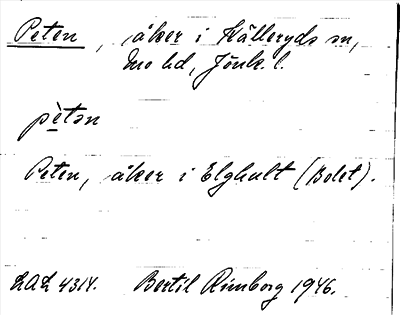 Peten, åker i Kålleryds sn,
Mo hd, Jönk. l.
pètən
Peten, åker i Elghult (Bolet).
LAL 4314. Bertil Rimborg 1946.